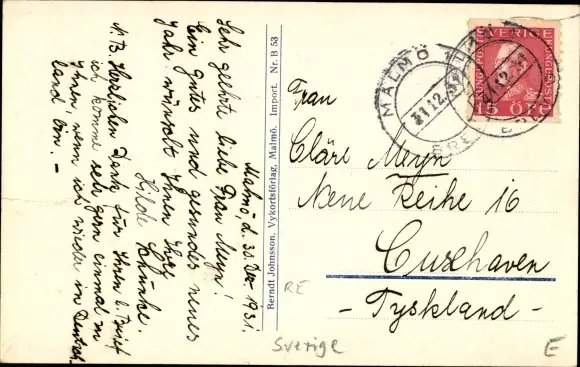 Malmö, d. 30. Dez. 1931.
Sehr geehrte liebe Frau Meyn!
Ein gutes und gesundes neues
Jahr wünscht Ihnen Ihre
Hilde
N.B. Herzlichen Dank für Ihren l. Brief
ich komme sehr gern einmal zu
Ihnen, wenn ich wieder in Deutsch-
land bin. -
Berndt Johnsson, Vykortsförlag, Malmö. Import. Nr. B 53
SVERIGE
15 ÖRE
MALMÖ
31.12.
Frau
Cläre Meyn
Neue Reihe 16
Cuxhaven
- Tyskland -
RE
Sverige
E